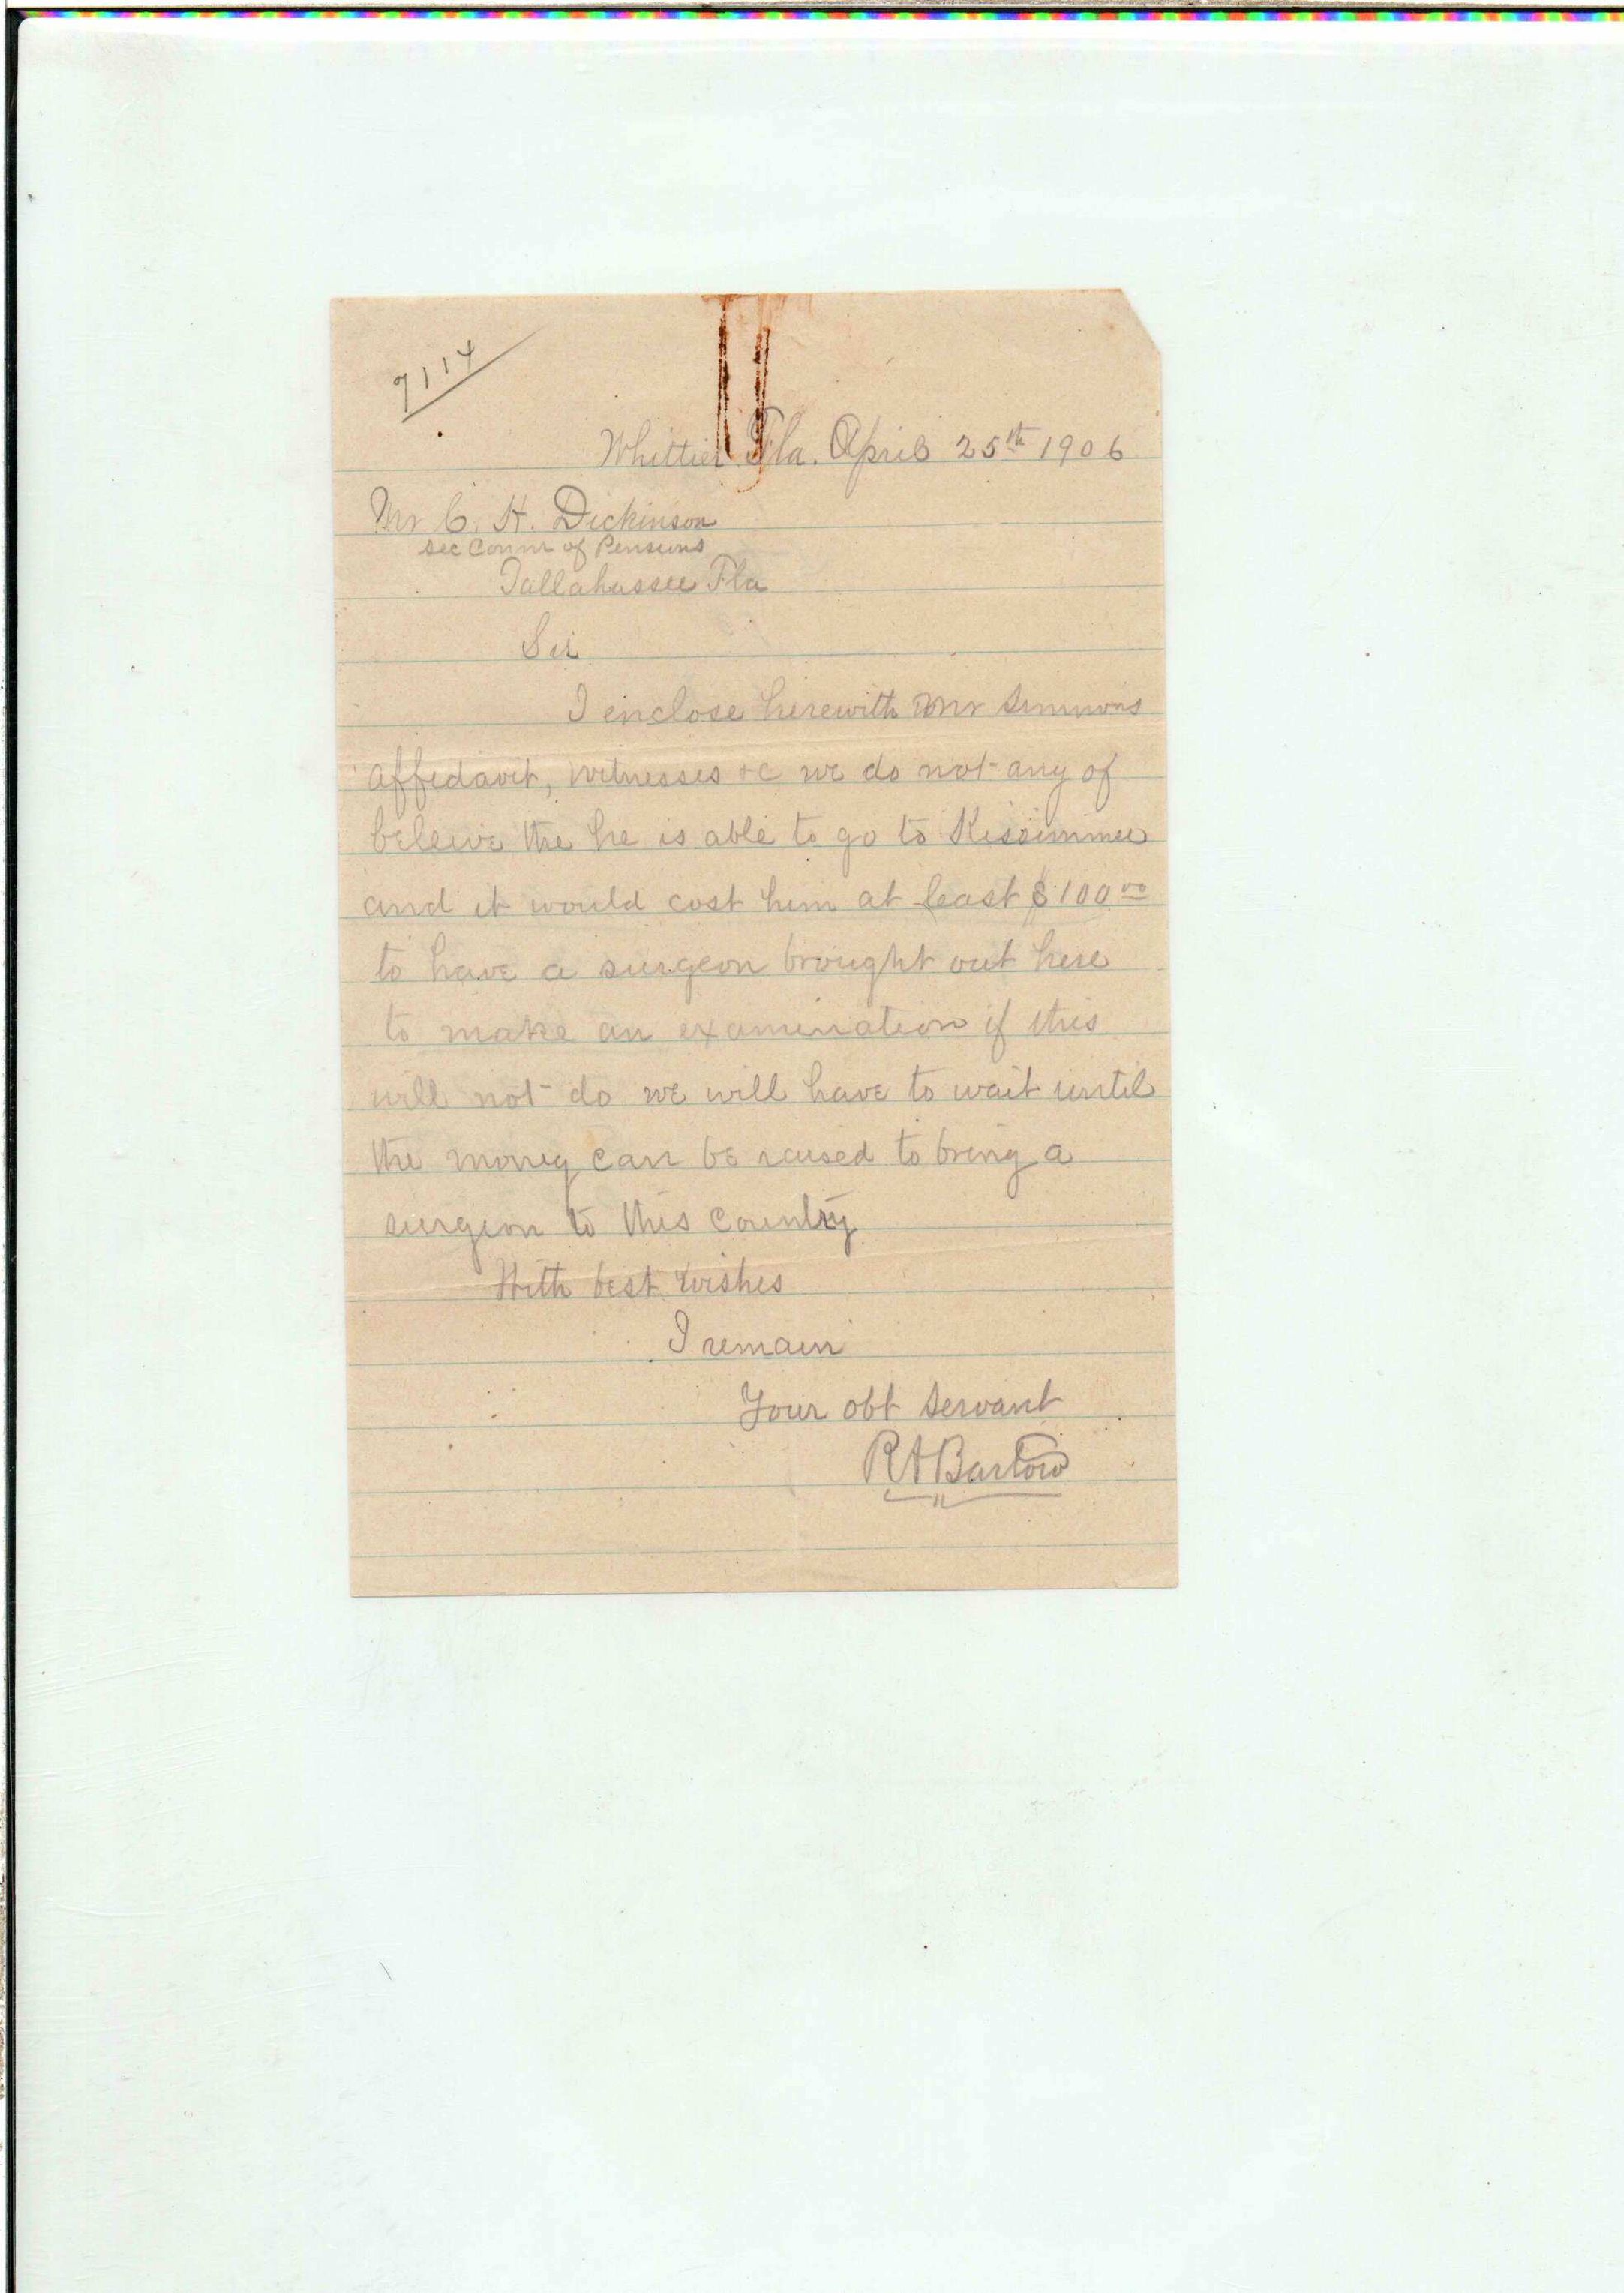 7114
Whittier Fla. April 25th 1906
Mr C. H. Dickinson
Sec Comr of Pensions
Tallahassee Fla
Sir
I enclose herewith Mr Simmons
affidavit, witnesses &c we do not any of
beleive the he is able to go to Kissimmee
and it would cost him at least $100.00
to have a surgeon brought out here
to make an examination if this
will not do we will have to wait until
the money can be raised to bring a
surgeon to this country
With best wishes
I remain
Your obt servant
RABarlow